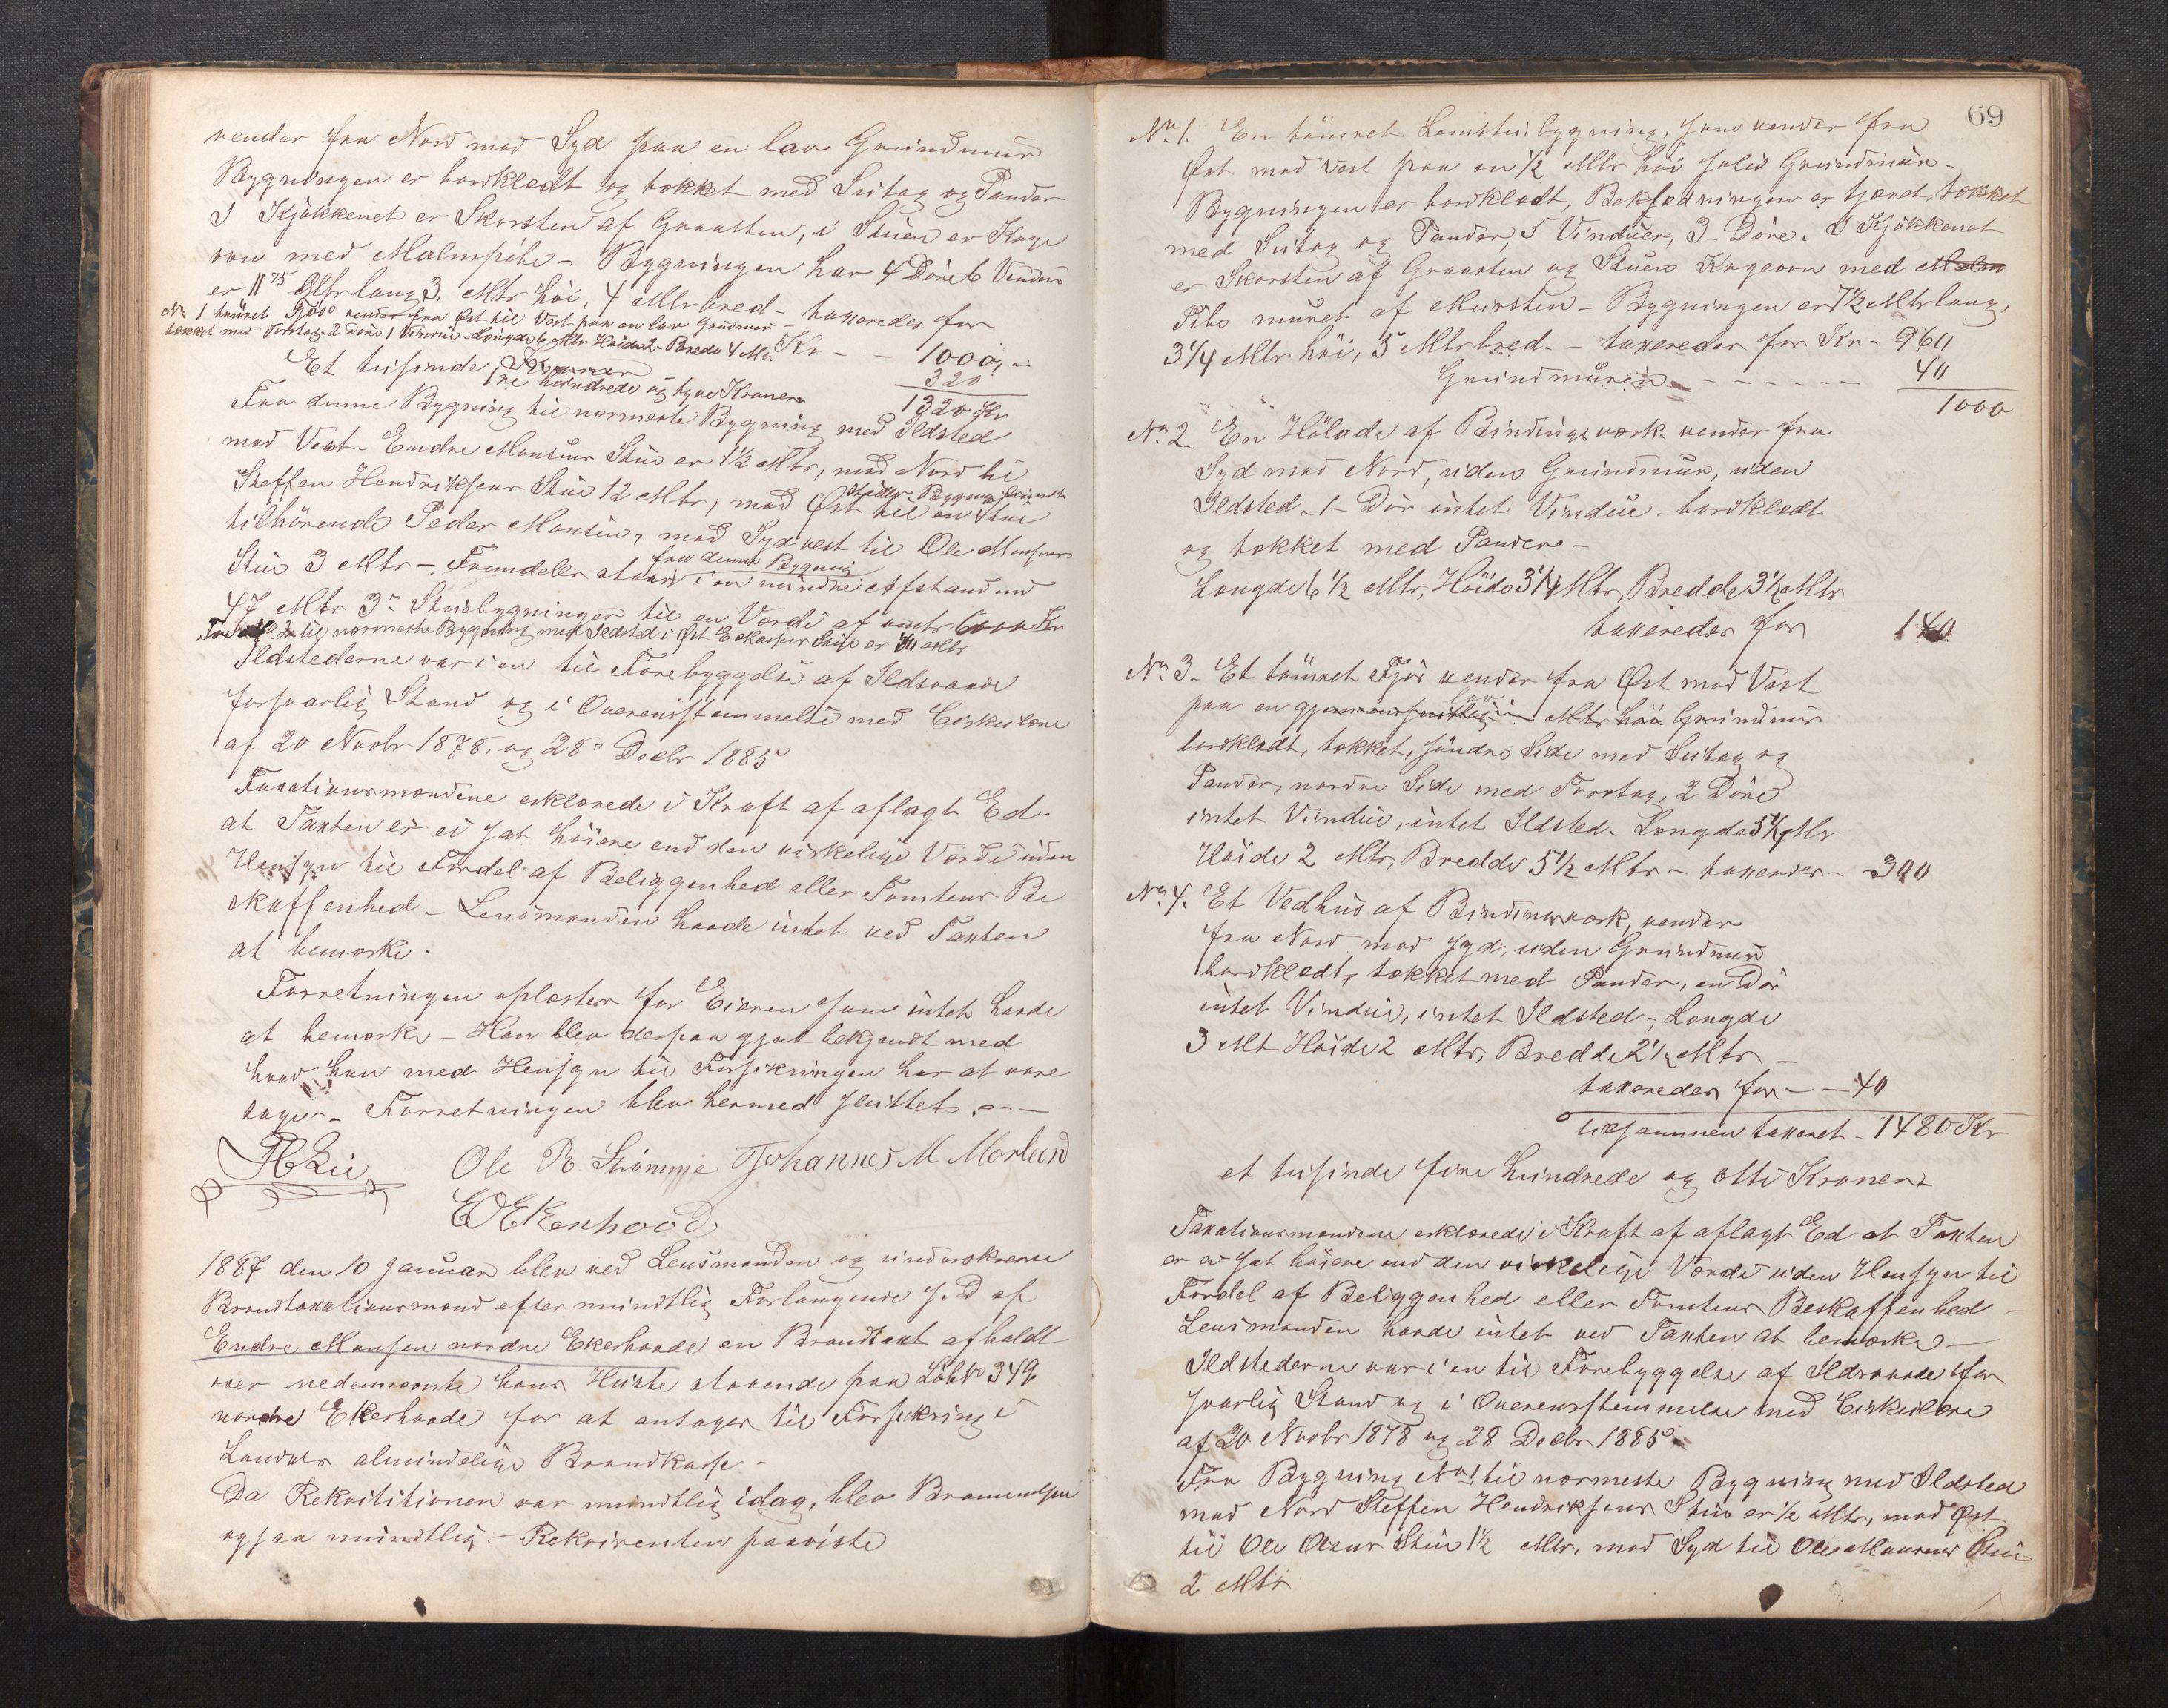 vender fra Nord mod Syd paa en lav Grundmur
Bygningen er bordklædt og tækket med Sutag og Pander
I Kjøkkenet er Skorsten af Graasten, i Stuen er Koge
ovn med Malmpibe – Bygningen har 4 Døre 6 Vinduer
er 11 75 Mtr lang 3, Mtr høi, 4 Mtr bred – taxeredes for
No 1 tømret Fjøs vender fra Øst til Vest paa en lav Grundmur –
tækket med Torvtag – 2 Døre 1 Vindue – Længde 6 Mtr Høide 2 – Brede 4 Mtr
Kr – – 1000, –
Et tusinde 320
tre hundrede og tyve Kroner 1320 Kr
Fra denne Bygning til nærmeste Bygning med Ildsted
mod Vest – Endre Monsens Stue er 1 1/2 Mtr, mod Nord til
Steffen Hendriksens Stue 12 Mtr, mod Øst til en Stue
tilhörende Peder Monsen, mod Sydvest til Ole Monsens
fra denne Bygning
Stue 3 Mtr – Fremdeles staar i en mindre Afstand end
47 Mtr 3 Stuebygninger til en Værdi af omtr 6000 Kr
til nærmeste Bygning med Ildsted i Øst Stue er 30 Mtr
Ildstederne var i en til Forebyggelse af Ildsvaade
forsvarlig Stand og i Overensstemmelse med Cirkulære
af 20 Novbr 1878, og 28 Decbr 1885
Taxationsmændene erklærede i Kraft af aflagt Ed –
at Taxten er ei sat høiere end den virkelige Værdi uden
Hensyn til Fordel af Beliggenhed eller Tomtens Be
skaffenhed – Lensmanden havde intet ved Taxten
at bemærke.
Forretningen oplæstes for Eieren som intet havde
at bemærke – Han blev derpaa gjort bekjendt med
hvad han med Hensyn til Forsikringen har at vare
tage – Forretningen blev hermed sluttet. – –
Ole R Strömme Johannes M Morland
1887 den 10 Januar blev ved Lensmanden og underskrevne
Brandtaxationsmænd efter mundtlig Forlangende s. D af
Endre Monsen nordre Ekerhovde en Brandtaxt afholdt
over nedennævnte hans Huse staaende paa Löbno 349
nordre Ekerhovde for at antages til Forsikring i
Landets almindelige Brandkasse –
Da Rekvisitionen var mundtlig idag, blev
ogsaa mundtlig – Rekvirenten paaviste
69
No 1. En tömret Stuebygning, som vender fra
Øst mod Vest paa en 1/2 Mtr høi solid Grundmur –
Bygningen er bordklædt, er tjæret, tækket
med Sutag og Pander, 5 Vinduer, 3 Döre. I Kjøkkenet
er Skorsten af Graasten og Stuen Kogeovn med Malm
Pibe muret af Mursten – Bygningen er 7 1/2 Mtr lang,
3 1/4 Mtr høi, 5 Mtr bred – taxeredes for Kr – 960
Grundmuren – – – – – – 40
1000
No 2 En Hölade af Bindingsværk vender fra
Syd mod Nord, uden Grundmur, uden
Ildsted – 1 – Dör intet Vindue – bordklædt
og tækket med Pander –
Længde 6 1/2 Mtr, Höide 3 1/4 Mtr, Bredde 3 1/2 Mtr
taxeredes for 140
No 3 – Et tömret Fjös vender fra Øst mod Vest
lav
paa en Mtr høi Grundmur
bordklædt, tækket, söndre Side med Sutag og
Pander, nordre Side med Torvtag, 2 Döre
intet Vindue, intet Ildsted – Længde 5 1/2 Mtr
Höide 2 Mtr, Bredde 5 1/2 Mtr – taxeredes – 300
No 4. Et Vedhus af Bindingsværk, vender
fra Nord mod Syd, uden Grundmur
bordklædt, tækket med Pander, en Dör
intet Vindue, intet Ildsted –, Længde
3 Mt Høide 2 Mtr, Bredde 2 1/2 Mtr –
taxeredes for – – 40
tilsammen taxeret – 1480 Kr
et tusinde fire hundrede og otti Kroner
Taxationsmændene erklærede i Kraft af aflagt Ed at Taxten
er ei sat høiere end den virkelige Værdi uden Hensyn til
Fordel af Beliggenhed eller Tomtens Beskaffenhed –
Lensmanden havde intet ved Taxten at bemærke –
Ildstederne var i en til Forebyggelse af Ildsvaade for
svarlig Stand og i Overensstemmelse med Cirkulære
af 20 Novbr 1878 og 28 Decbr 1885
Fra Bygning No 1 til nærmeste Bygning med Ildsted
mod Nord Steffen Hendriksens Stue er 1/2 Mtr, mod Øst
til Ole Olsens Stue 1 1/2 Mtr. mod Syd til Ole Monsens Stue
2 Mtr